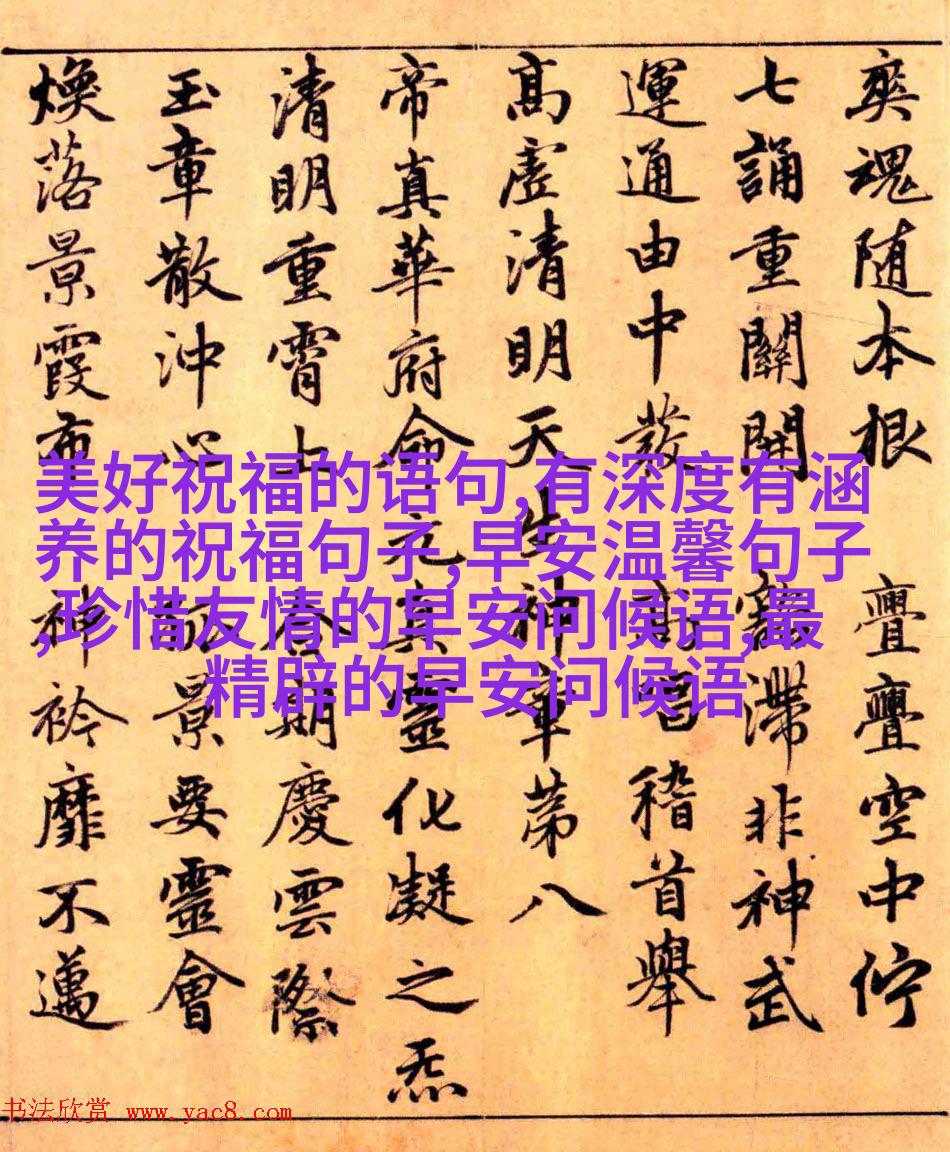 爽魂随本根 亹亹空中佇
七誦重關開 豁滯非神武
運通由中發 稽首舉
高虛清明天生神章第八
帝真華府命元真靈化凝之炁
清明重霄上合期慶雲際
玉章散沖心 景要靈會
煥落景霞布神衿靡不邁
美好祝福的语句,有深度有涵
养的祝福句子,早安温馨句子
,珍惜友情的早安问候语,最
精辟的早安问候语
书法欣赏 www.yac8.com